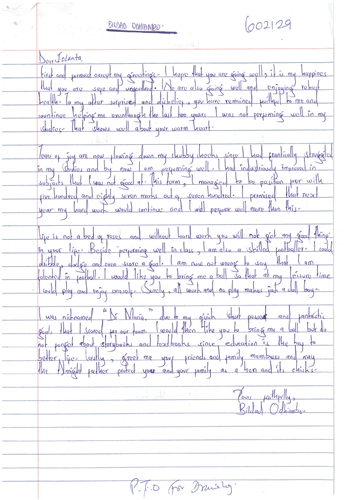 602129
Dear Jolanta,
First and foremost accept my greetings. I hope that you are going well, it is my happiness
that you are safe and We are also going well and enjoying robust
health. To my utter surprised and you have remained faithful to me and
continue helping me the last ten years. I was not performing well in my
studies. That shows well about your warm heart.
Tears of joy are now flowing down my chubby cheeks since I had
in my studies and by now I am performing well. I had industriously improved in
subjects that I was not good at this term, I managed to be position four with
five hundred and eighty seven marks out of seven hundred. I that next
year my hard work would continue and I will perform well more than this.
Life is not a bed of roses and without hard work you will not get any good thing
in your life. Beside performing well in class, I am also a skilled footballer. I could
dribble, dodge and even score a goal. I am not wrong to say that I am
talented in football. I would like you to bring me a ball so that at my leisure time
I could play and enjoy myself. Surely, all work and no play makes Jack a dull boy.
I was nicknamed "Di Maria" due to my quick shoot power and fantastic
goal that I scored for our team. I would then like you to bring me a ball but do
not forget about storybooks and textbooks since education is the key to
better life. Lastly, greet me your friends and family members and may
the Almight father protect you and your family as a hen and its chicks.
Yours faithfully,
P.T.O For Drawing